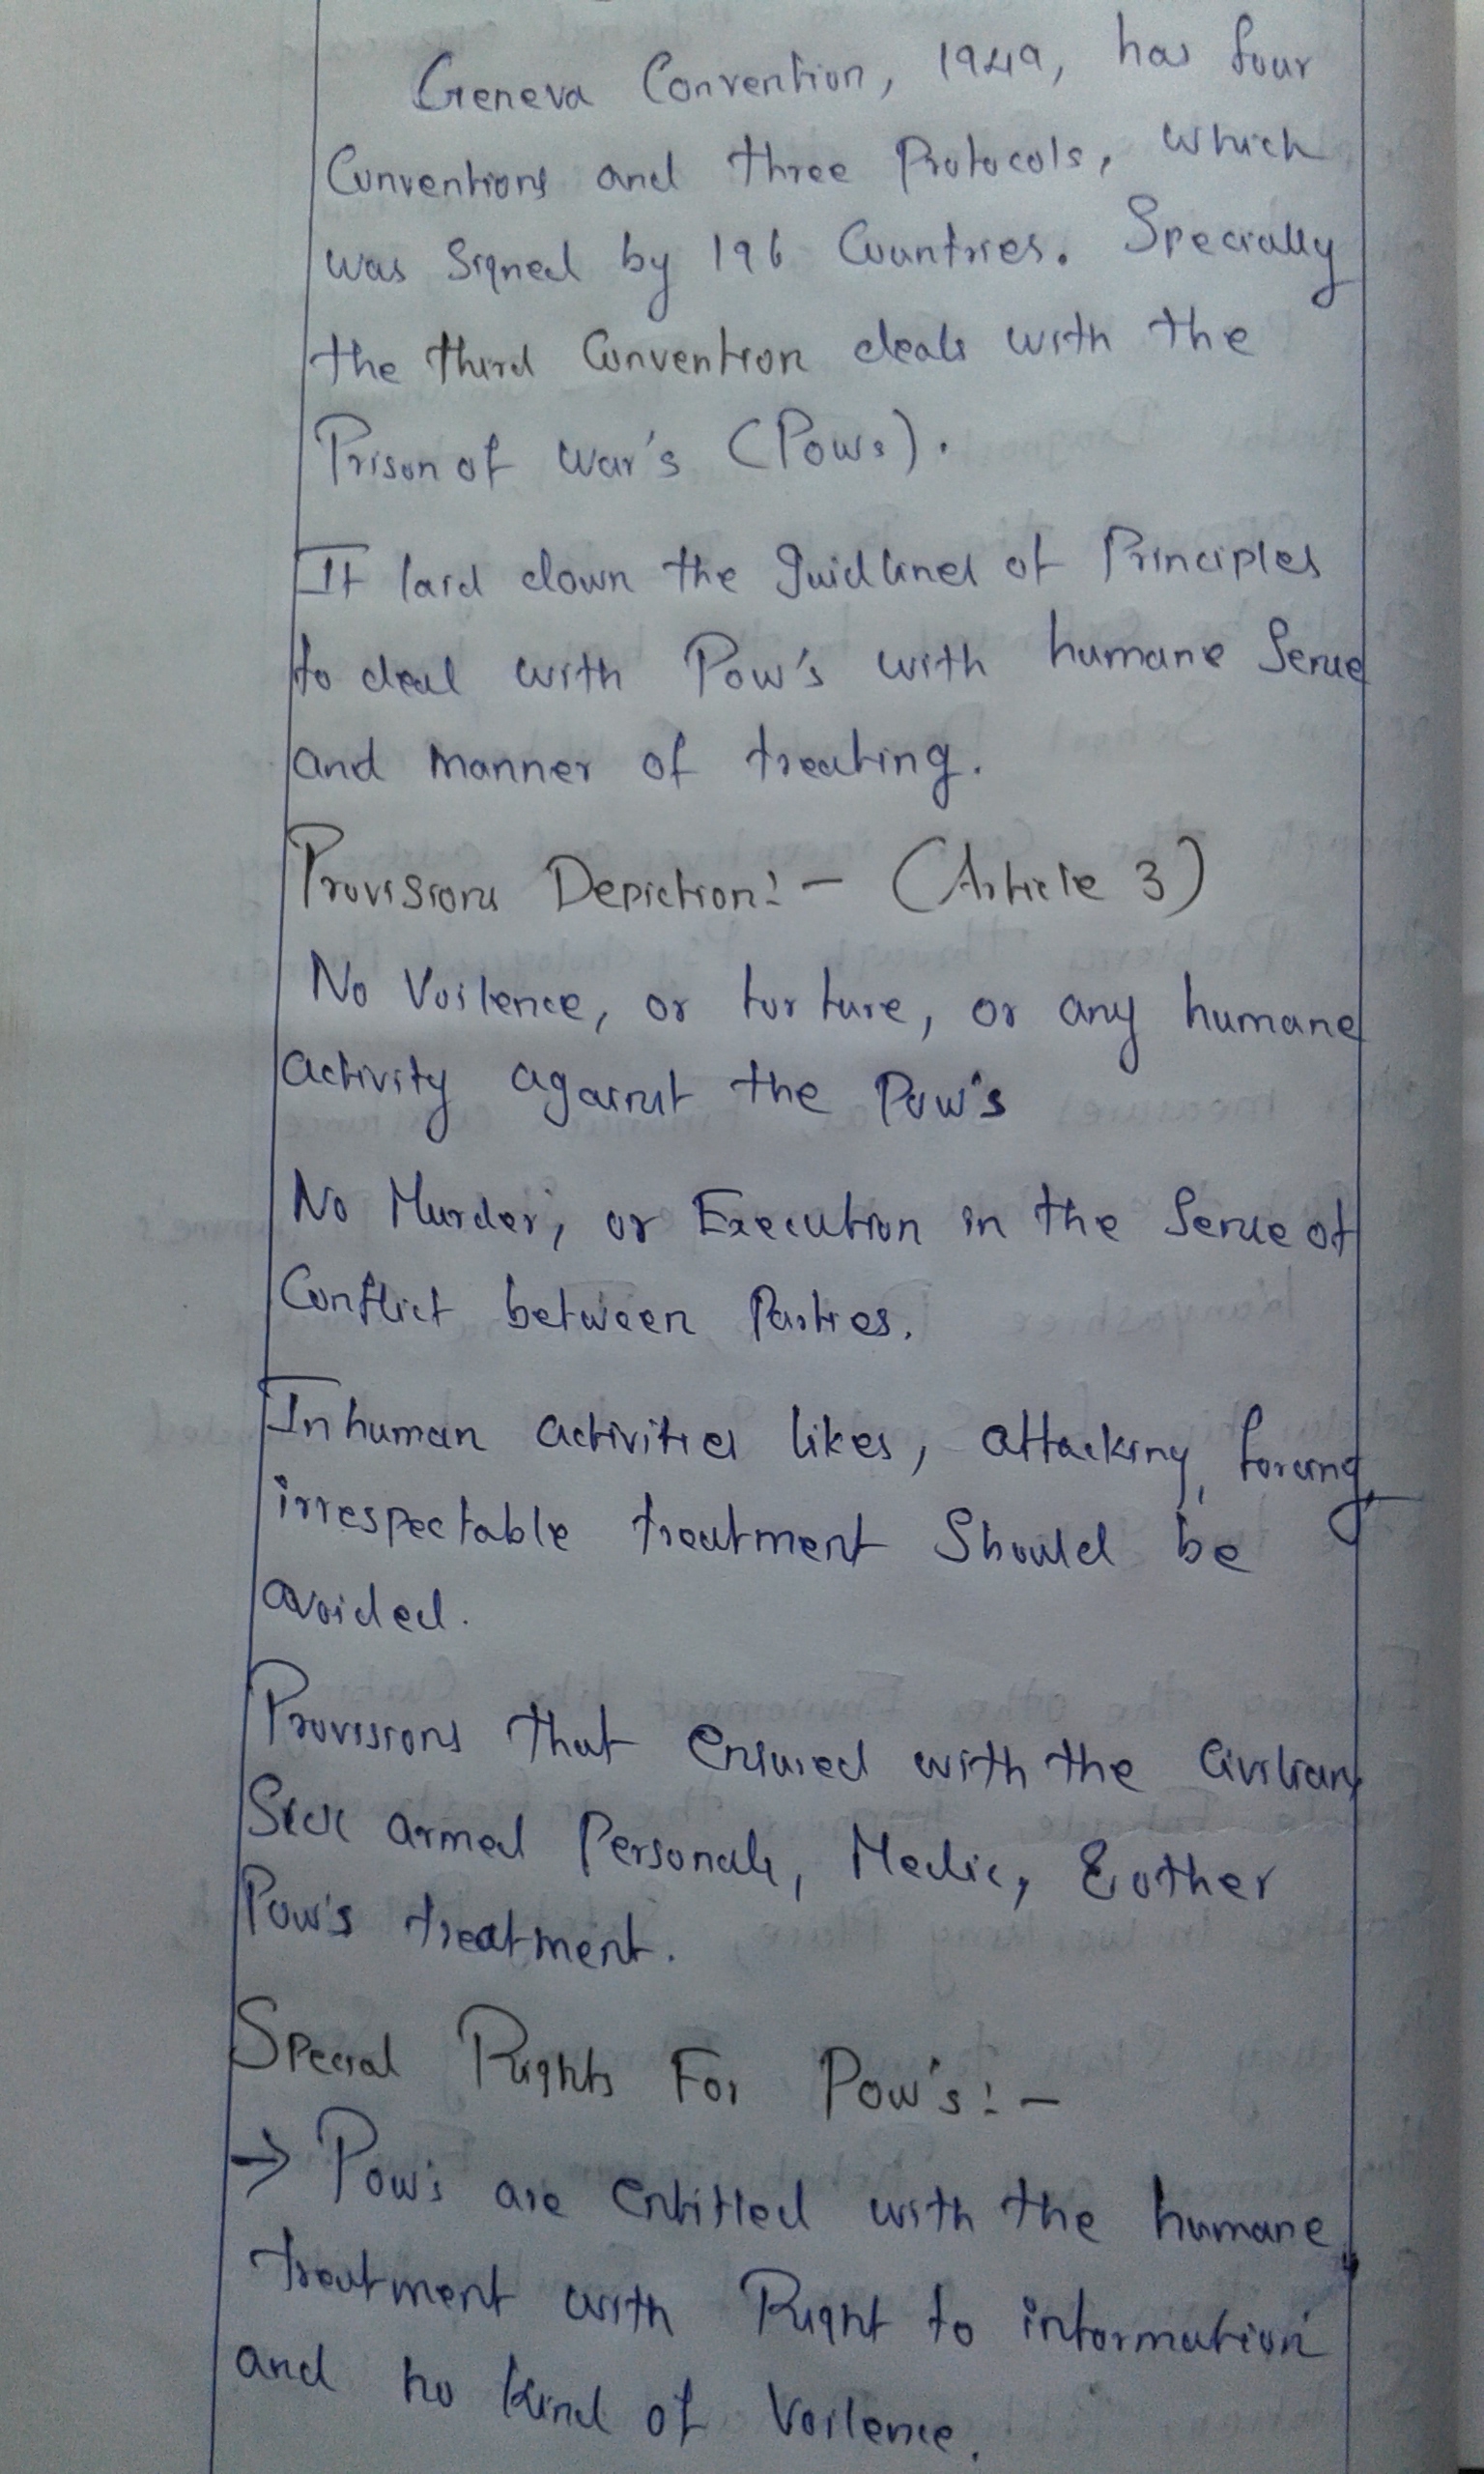 Geneva Convention, 1949, has four
Conventions and three Protocols, which
was Signed by 196 Countries. Specially
the third Convention deals with the
Prison of war's (Pows).
It laid down the guidlines of Principles
to deal with Pow's with humane Sense
and manner of treating.
Provisions Depiction:- (Article 3)
No Voilence, or torture, or any humane
activity against the Pow's
No Murder, or Execution in the Sense of
Conflict between Parties.
Inhuman activities likes, attacking, forcing,
irrespectable treatment Should be
avoided.
Provisions that ensured with the Civilian,
Sick armed Personals, Medic, & other
Pow's treatment.
Special Rights For Pow's:-
→ Pow's are entitled with the humane
treatment with Right to information
and no kind of Voilence.